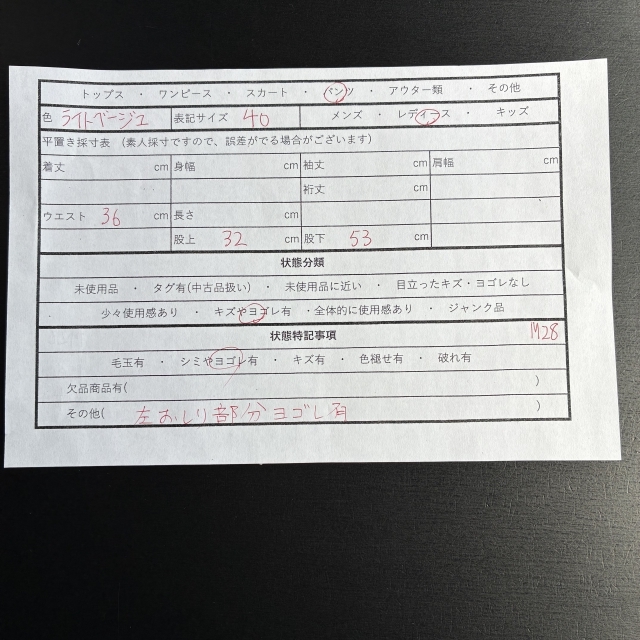 トップス ・ ワンピース ・ スカート ・ パンツ ・ アウター類 ・ その他
色 ライトベージュ 表記サイズ 40 メンズ ・ レディース ・ キッズ
平置き採寸表 (素人採寸ですので、誤差がでる場合がございます)
着丈 cm 身幅 cm 袖丈 cm 肩幅 cm
裄丈 cm
ウエスト 36 cm 長さ cm
股上 32 cm 股下 53 cm
状態分類
未使用品 ・ タグ有(中古品扱い) ・ 未使用品に近い ・ 目立ったキズ・ヨゴレなし
少々使用感あり ・ キズやヨゴレ有 ・全体的に使用感あり ・ ジャンク品
状態特記事項 M28
毛玉有 ・ シミやヨゴレ有 ・ キズ有 ・ 色褪せ有 ・ 破れ有
欠品商品有( )
その他( 左おしり部分ヨゴレ有 )